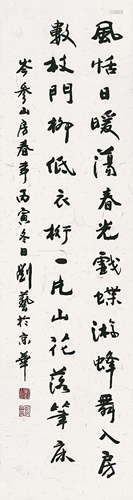 風恬日暖蕩春光戲蝶游蜂舞入房
數枝門柳低衣桁一片山花落筆床
岑參山房春事丙寅冬日劉藝於京華